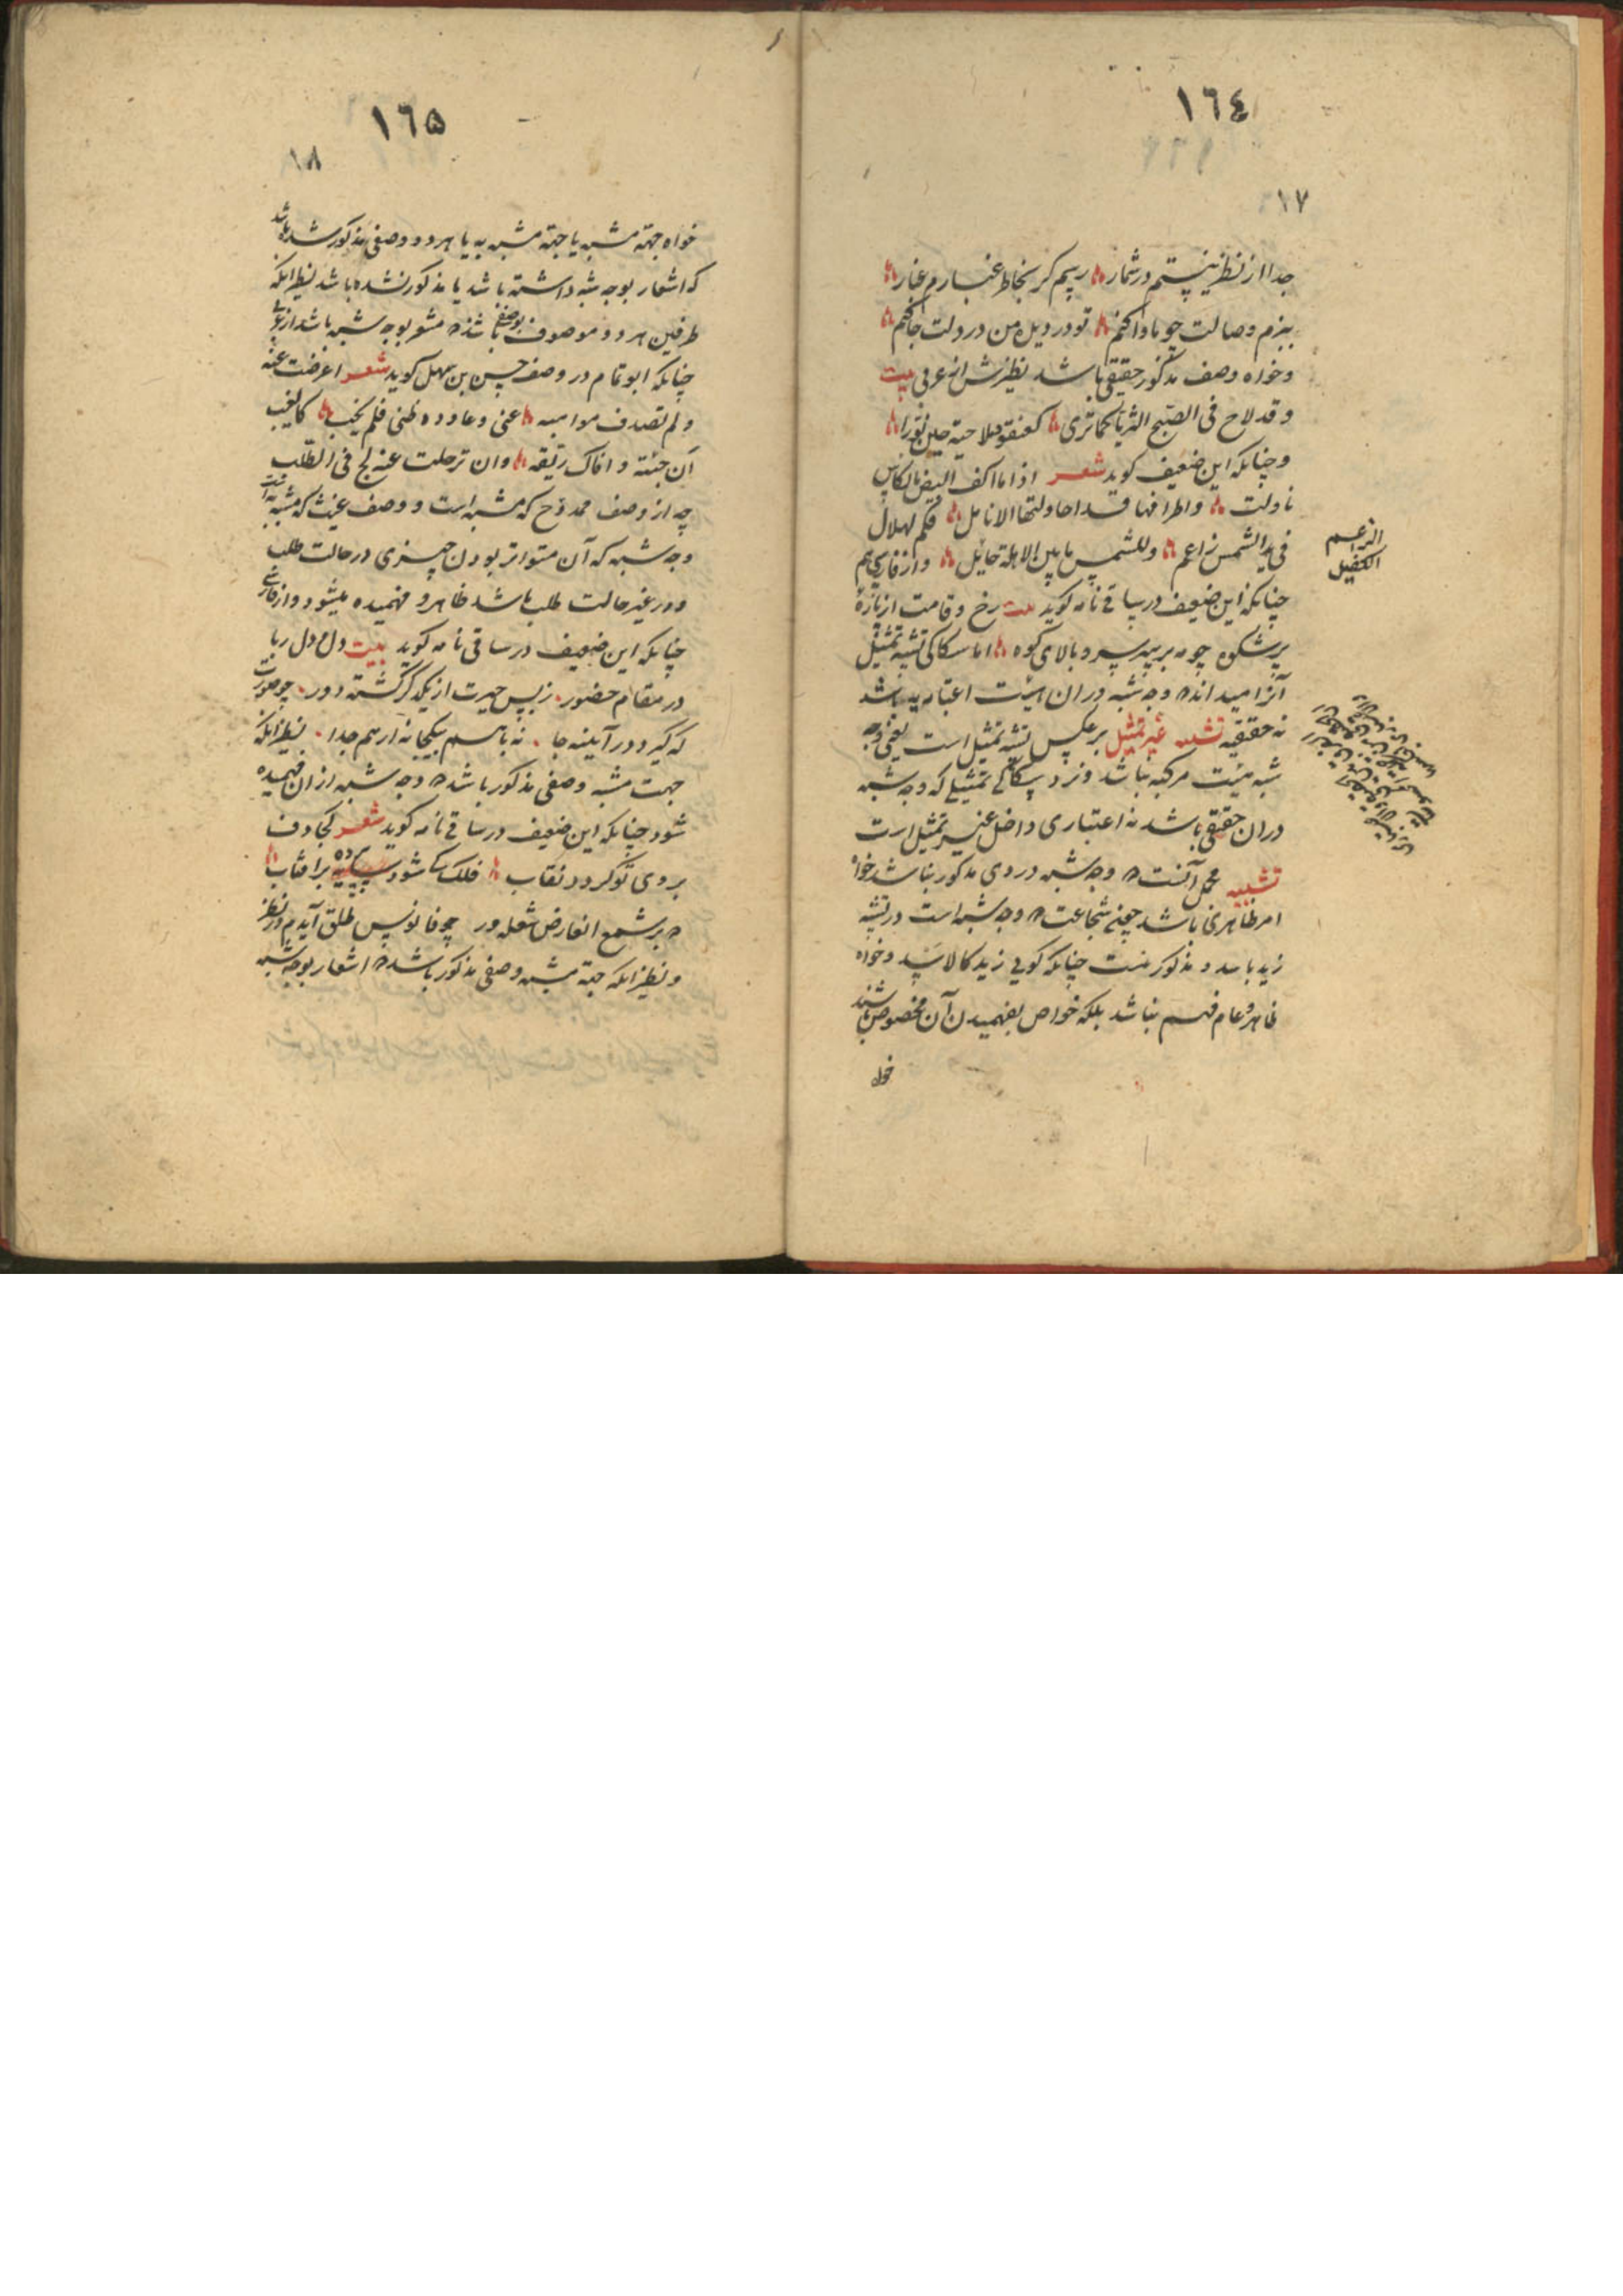 ١٦٤
١٧
جدا از نظر نیستم در شمار رسم گر بخاطر غبارم غبار
ببزم وصالت چو ماوا کنم تو در دیده من در دلت جا کنم
و خواه وصف مذکور حقیقی باشد نظیرش از عربی بیت
و قد لاح فی الصبح الثریا کما تری کعنقود ملاحیة حین نورا
و چنانکه این ضعیف کوید شعر اذا ما اکف البیض بالکاس
ناولت و اطرافها قد احاولتها الانامل فکم لهلال
فی ید الشمس زاعم و للشمس ما بین الاهلة حایل و از فارسی هم
چنانکه این ضعیف در ساقی نامه کوید بیت رخ و قامت از تازه
پر شکوه چو مه بر سر سرو بالای کوه اما سکاکی تشبیه تمثیل
آنرا میداند که وجه شبه در آن هیئت اعتباریه باشد
نه حقیقیه تشبیه غیر تمثیل بر عکس تشبیه تمثیل است یعنی وجه
شبه هیئت مرکبه نباشد و نزد سکاکی تمثیلی که وجه شبه
در آن حقیقی باشد نه اعتباری داخل غیر تمثیل است
تشبیه مجمل آنست که وجه شبه در وی مذکور نباشد خواه
امر ظاهری باشد چنانچه شجاعت که وجه شبه است در تشبیه
زید باسد و مذکور نیست چنانکه کویی زید کالاسد و خواه
ظاهر و عام فهم نباشد بلکه خواص بفهمیدن آن مخصوص باشند
خواه
الزعیم
الکفیل
١٦۵
١٨
خواه جهة مشبه یا جهة مشبه به یا هر دو وصفی مذکور شده باشد
که اشعار بوجه شبه داشته باشد یا مذکور نشده باشد نظیر انکه
طرفین هر دو موصوف بوصفی باشند که مشعر بوجه شبه باشد از عربی
چنانکه ابو تمام در وصف حسن بن سهل کوید شعر اعرضت عنه
و لم تصدف مواهبه عنی و عاوده ظنی فلم یخب کالغیث
ان جئته وافاک ریقه و ان ترحلت عنه لج فی الطلب
چه از وصف ممدوح که مشبه است و وصف غیث که مشبه به است
وجه شبه که آن متواتر بودن چیزی در حالت طلب
و در غیر حالت طلب باشد ظاهر و فهمیده میشود و از فارسی
چنانکه این ضعیف در ساقی نامه کوید بیت دل و دل ربا
در مقام حضور زبس حیرت از یکدکر کشته دور چو صورت
که کیرد در آیینه جا نه با هم بیکجا نه از هم جدا نظیر انکه
جهت مشبه وصفی مذکور باشد که وجه شبه از ان فهمیده
شود چنانکه این ضعیف در ساقی نامه کوید شعر کجا دف
بروی تو کردد نقاب فلک کی شود پرده بر افتاب
که بر شمع انعارض شعله ور چو فانوس طلق آیدم در نظر
و نظیر انکه جهة مشبه وصفی مذکور باشد که اشعار بوجه شبه